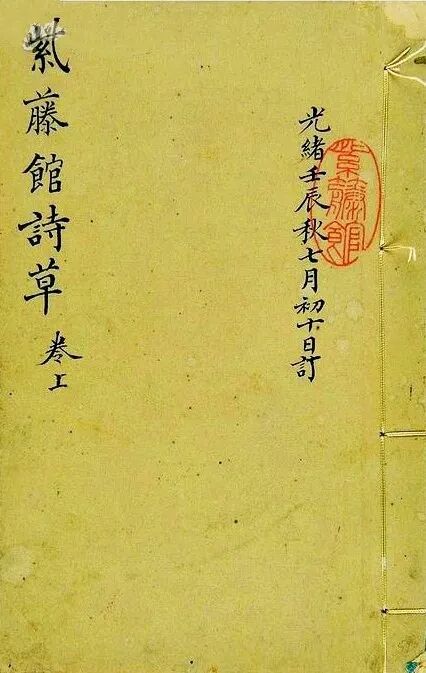 光緒壬辰秋七月初十日訂
紫藤館
紫藤館詩草 卷上